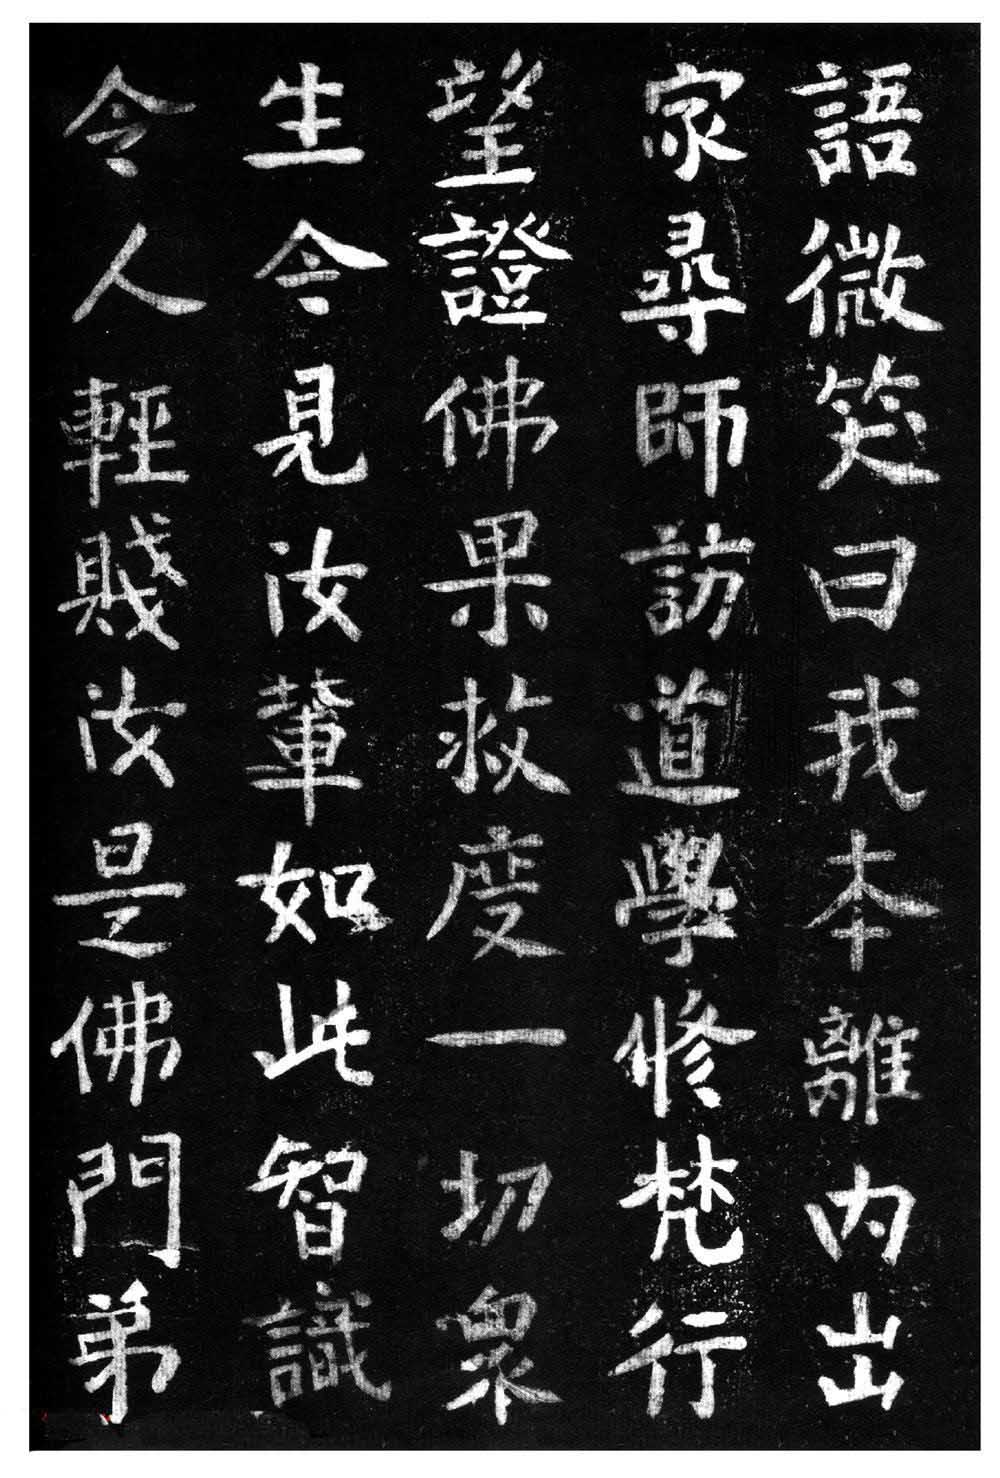 語微笑曰我本離內出
家尋師訪道學修梵行
望證佛果救度一切眾
生今見汝輩如此智識
令人輕賤汝是佛門弟